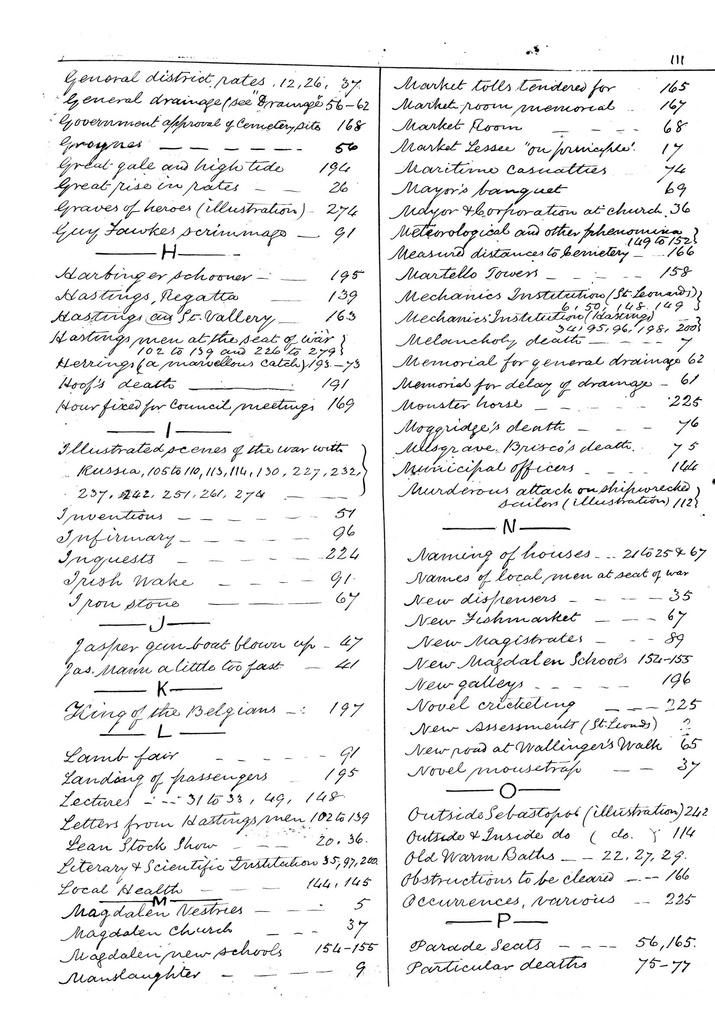 III
General district rates . 12, 26, 37
General drainage (see "Drainage" 56–62
Government approval of Cemetery site 168
Groynes — — — — 56
Great gale and high tide 194
Great rise in rates — — 26
Graves of heroes (illustration) - 274
Guy Fawkes scrimmage — 91
H
Harbinger schooner — — 195
Hastings Regatta — — 139
Hastings and St. Vallery — 163
Hastings men at the seat of war
102 to 139 and 226 to 279
Herrings (a marvellous catch) 193–73
Hoof's death — — 191
Hour fixed for Council meetings 169
I
Illustrated scenes of the war with
Russia, 105 to 110, 113, 114, 130, 227, 232,
237, 242, 251, 261, 274
Inventions — — — — 51
Infirmary — — — — 96
Inquests — — — — 224
Irish Wake — — — 91
Iron stone — — — 67
J
Jasper gun-boat blown up - 47
Jas. Mann a little too fast — 41
K
King of the Belgians — : 197
L
Lamb fair — — — 91
Landing of passengers 195
Lectures — — 31 to 33, 49, 148
Letters from Hastings men 102 to 139
Lean Stock Show — — 20, 36
Literary & Scientific Institution 35, 97, 200
Local Health — — 144, 145
M
Magdalen Vestries — — 5
Magdalen Church — — 37
Magdalen new schools 154–155
Manslaughter — — — 9
Market tolls tendered for 165
Market room memorial 167
Market Room — — — 68
Market Lessee "on principle" 17
Maritime casualties — 74
Mayor's banquet — 69
Mayor & Corporation at church 36
Meteorological and other phenomina
149 to 152
Measured distances to Cemetery — 166
Martello Towers — — 158
Mechanics Institution (St. Leonards)
6, 50, 148, 149
Mechanics' Institution (Hastings)
34, 95, 96, 198, 200
Melancholy death — — 7
Memorial for general drainage 62
Memorial for delay of drainage - 61
Monster horse — — — 225
Moggridge's death — — 76
Musgrave Brisco's death 75
Municipal officers — — 144
Murderous attack on shipwrecked
sailors (illustration) 112
N
Naming of houses — 21 to 25 & 67
Names of local men at seat of war
New dispensers — — 35
New Fishmarket — — 67
New Magistrates — — 89
New Magdalen Schools 154–155
New galleys — — — 196
Novel cricketing — — — 225
New Assessments (St. Leonds) ?
New road at Wallinger's Walk 65
Novel mousetrap — — 37
O
Outside Sebastopol (illustration) 242
Outside & Inside do ( do. ) 114
Old Warm Baths — — 22, 27, 29.
Obstructions to be cleared — 166
Occurrences, various — 225
P
Parade Seats — — — 56, 165.
Particular deaths 75–77